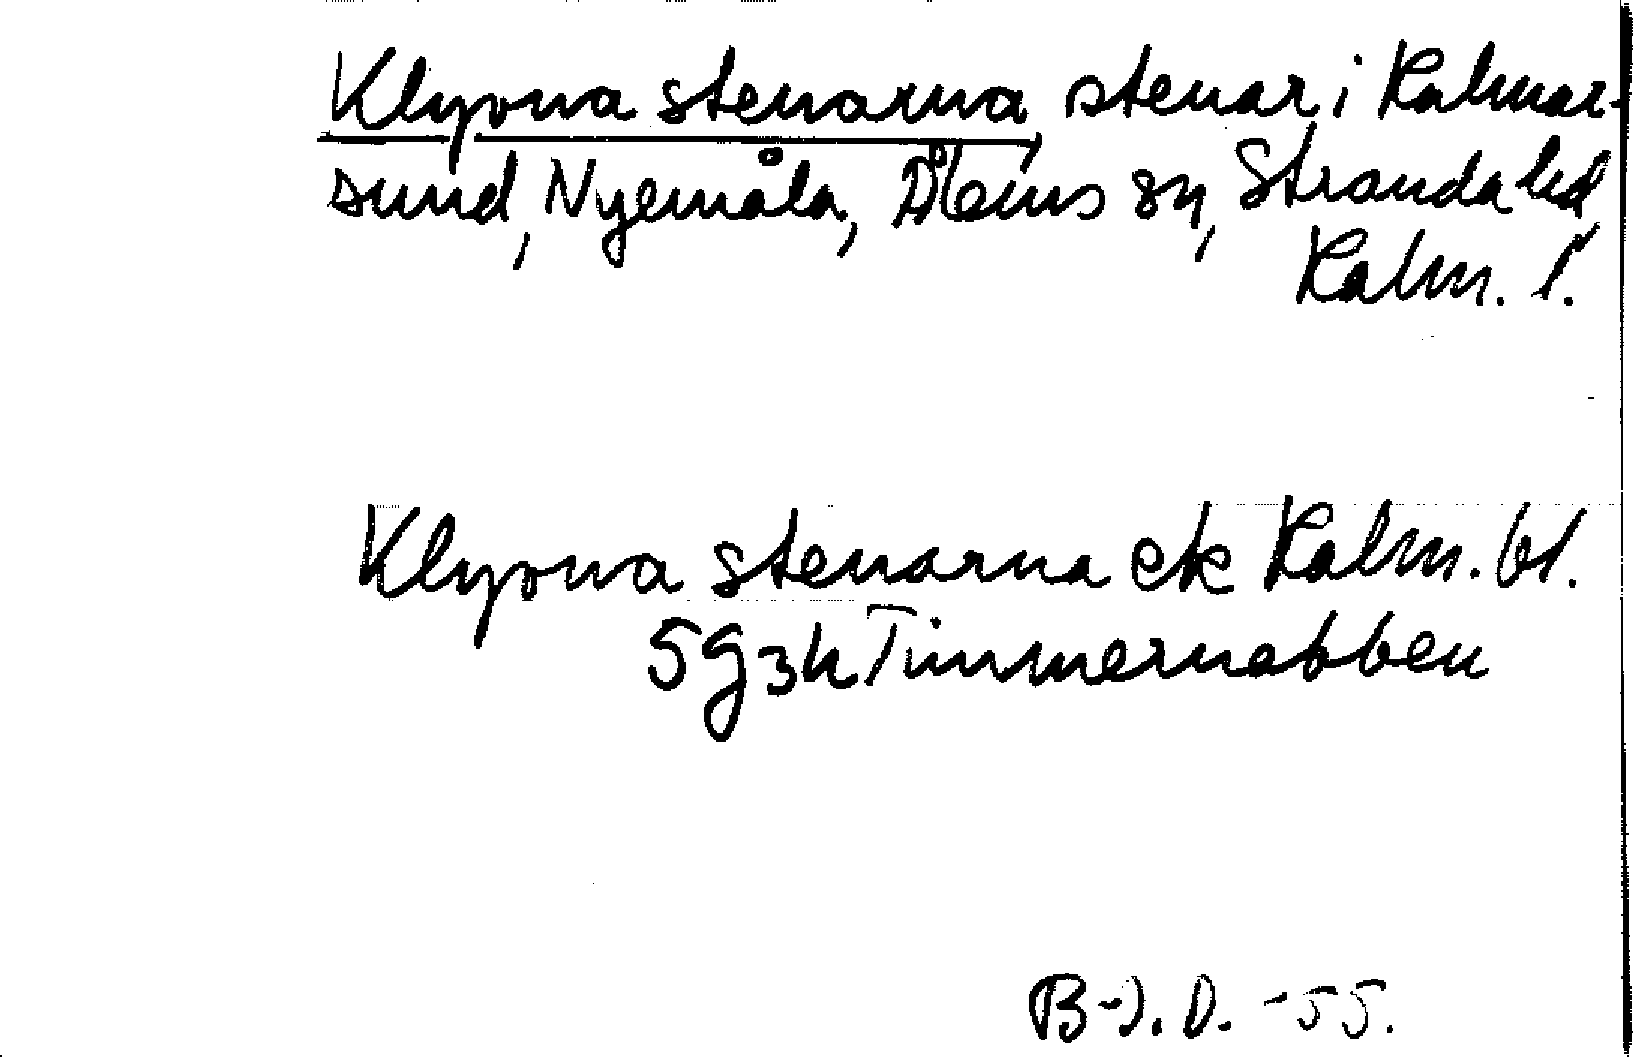 Klyvna stenarna, stenar i Kalmar-
sund, Nyemåla, Ålems sn, Stranda hd,
Kalm. l.
Klyvna stenarna ek Kalm. bl.
5g3h Timmernabben
B-J. D. -55.